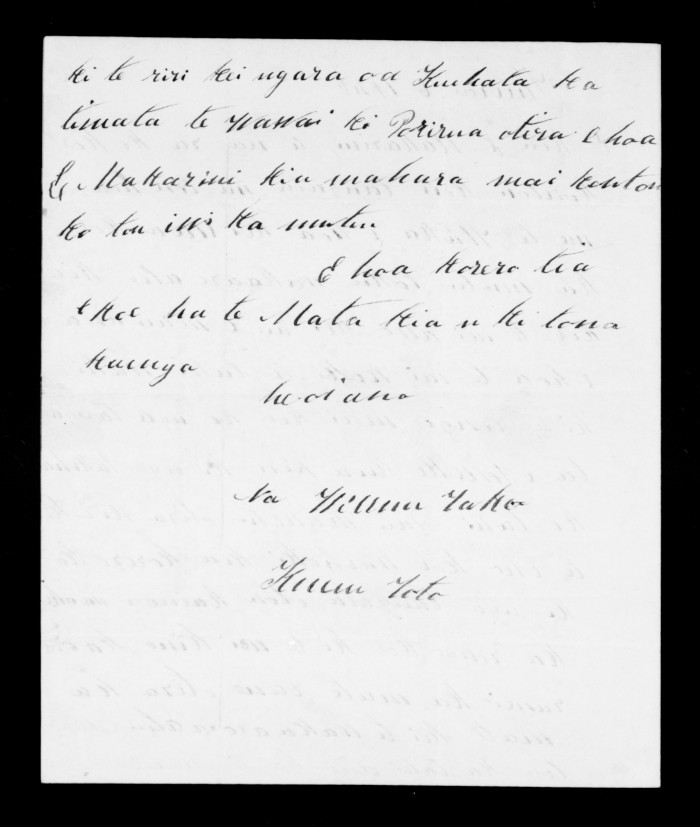 ki te riri kei ngara od Kuihata ka
timata te Wawai ki Porirua otira E hoa
E Makarini kia mahara mai kehton
ko tou iwi ka mutu
E hoa korero tia
e koe ha te Mata kia u ki tona
kainga
heoi ano
Na Wiremu Tako
Kumu Toto